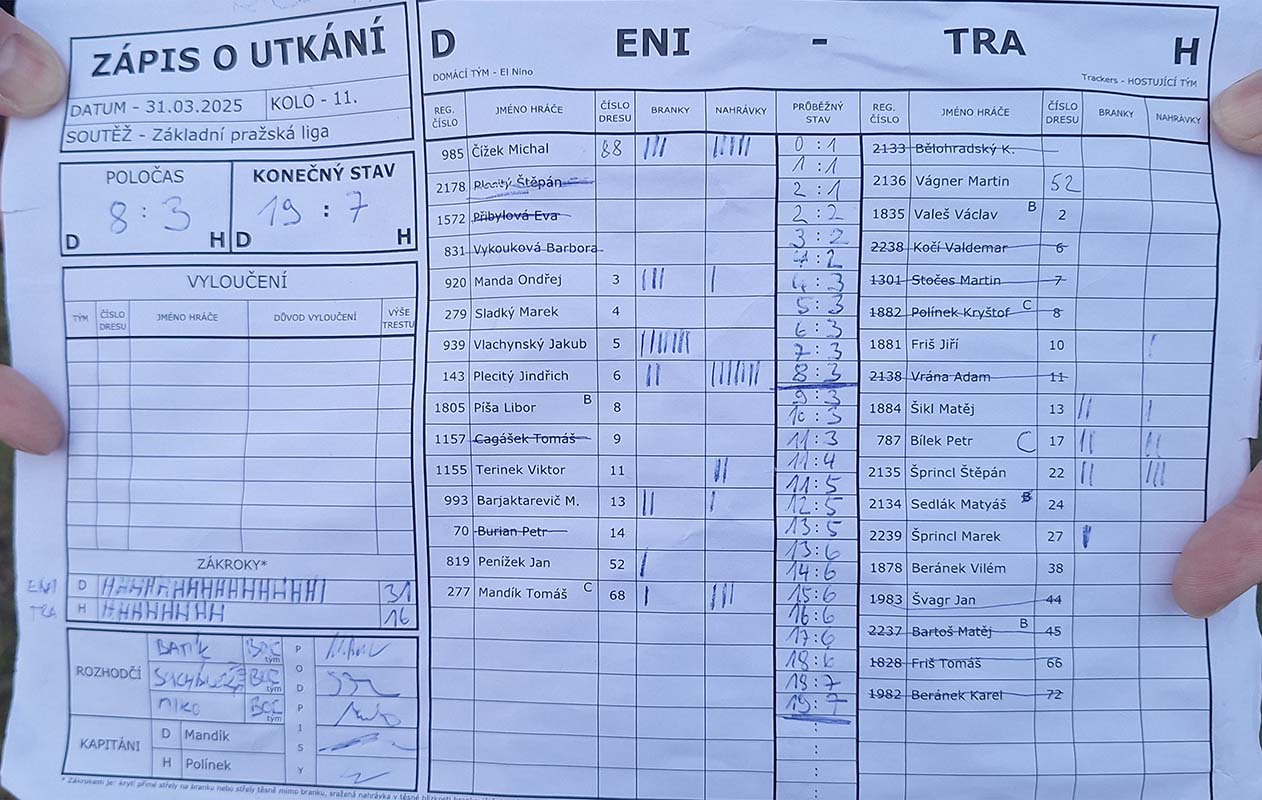 ZÁPIS O UTKÁNÍ
DATUM - 31.03.2025 KOLO - 11.
SOUTĚŽ - Základní pražská liga
POLOČAS KONEČNÝ STAV
8 : 3 19 : 7
D H D H
VYLOUČENÍ
TÝM ČÍSLO DRESU JMÉNO HRÁČE DŮVOD VYLOUČENÍ VÝŠE TRESTU
ZÁKROKY*
ENI D 31
TRA H 16
ROZHODČÍ
BARTÍK BOC tým
BOC tým
MIKO BOC tým
PODPISY
KAPITÁNI
D Mandík
H Polínek
* Zákrokem je: krytí přímé střely na branku nebo střely těsně mimo branku, sražená nahrávka v těsné blízkosti
D ENI - TRA H
DOMÁCÍ TÝM - El Nino Trackers - HOSTUJÍCÍ TÝM
REG. ČÍSLO JMÉNO HRÁČE ČÍSLO DRESU BRANKY NAHRÁVKY PRŮBĚŽNÝ STAV REG. ČÍSLO JMÉNO HRÁČE ČÍSLO DRESU BRANKY NAHRÁVKY
985 Čížek Michal 88 ||| |||||
2178 Plecitý Štěpán
1572 Přibylová Eva
831 Vykouková Barbora
920 Manda Ondřej 3 ||| |
279 Sladký Marek 4
939 Vlachynský Jakub 5
143 Plecitý Jindřich 6 ||
1805 Píša Libor B 8
1157 Cagášek Tomáš 9
1155 Terinek Viktor 11 ||
993 Barjaktarevič M. 13 || |
70 Burian Petr 14
819 Penížek Jan 52 |
277 Mandík Tomáš C 68 | |||
0 : 1
1 : 1
2 : 1
2 : 2
3 : 2
4 : 2
4 : 3
5 : 3
6 : 3
7 : 3
8 : 3
9 : 3
10 : 3
11 : 3
11 : 4
11 : 5
12 : 5
13 : 5
13 : 6
14 : 6
15 : 6
16 : 6
17 : 6
18 : 6
18 : 7
19 : 7
:
:
:
2133 Bělohradský K.
2136 Vágner Martin 52
1835 Valeš Václav B 2
2238 Kočí Valdemar 6
1301 Stočes Martin 7
1882 Polínek Kryštof C 8
1881 Friš Jiří 10 |
2138 Vrána Adam 11
1884 Šikl Matěj 13 || |
787 Bílek Petr C 17 || ||
2135 Šprincl Štěpán 22 || |||
2134 Sedlák Matyáš B 24
2239 Šprincl Marek 27 |
1878 Beránek Vilém 38
1983 Švagr Jan 44
2237 Bartoš Matěj B 45
1828 Friš Tomáš 66
1982 Beránek Karel 72